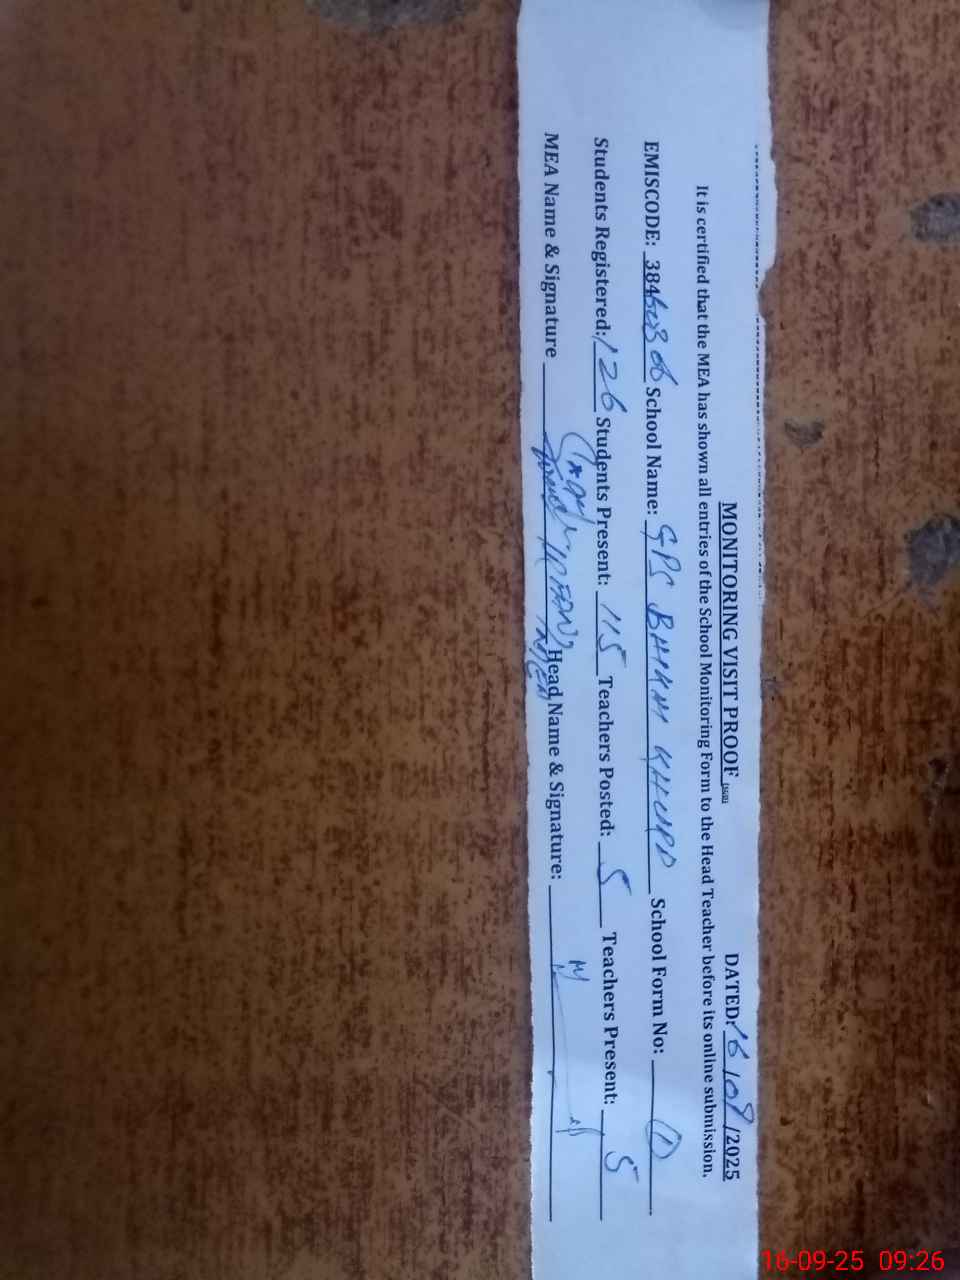 MONITORING VISIT PROOF DATED: 16/09/2025
It is certified that the MEA has shown all entries of the School Monitoring Form to the Head Teacher before its online submission.
EMISCODE: 384 School Name: GPS BHAM KHURD School Form No: 1
Students Registered: 126 Students Present: 115 Teachers Posted: 5 Teachers Present: 5
MEA Name & Signature Head Name & Signature:
16-09-25 09:26